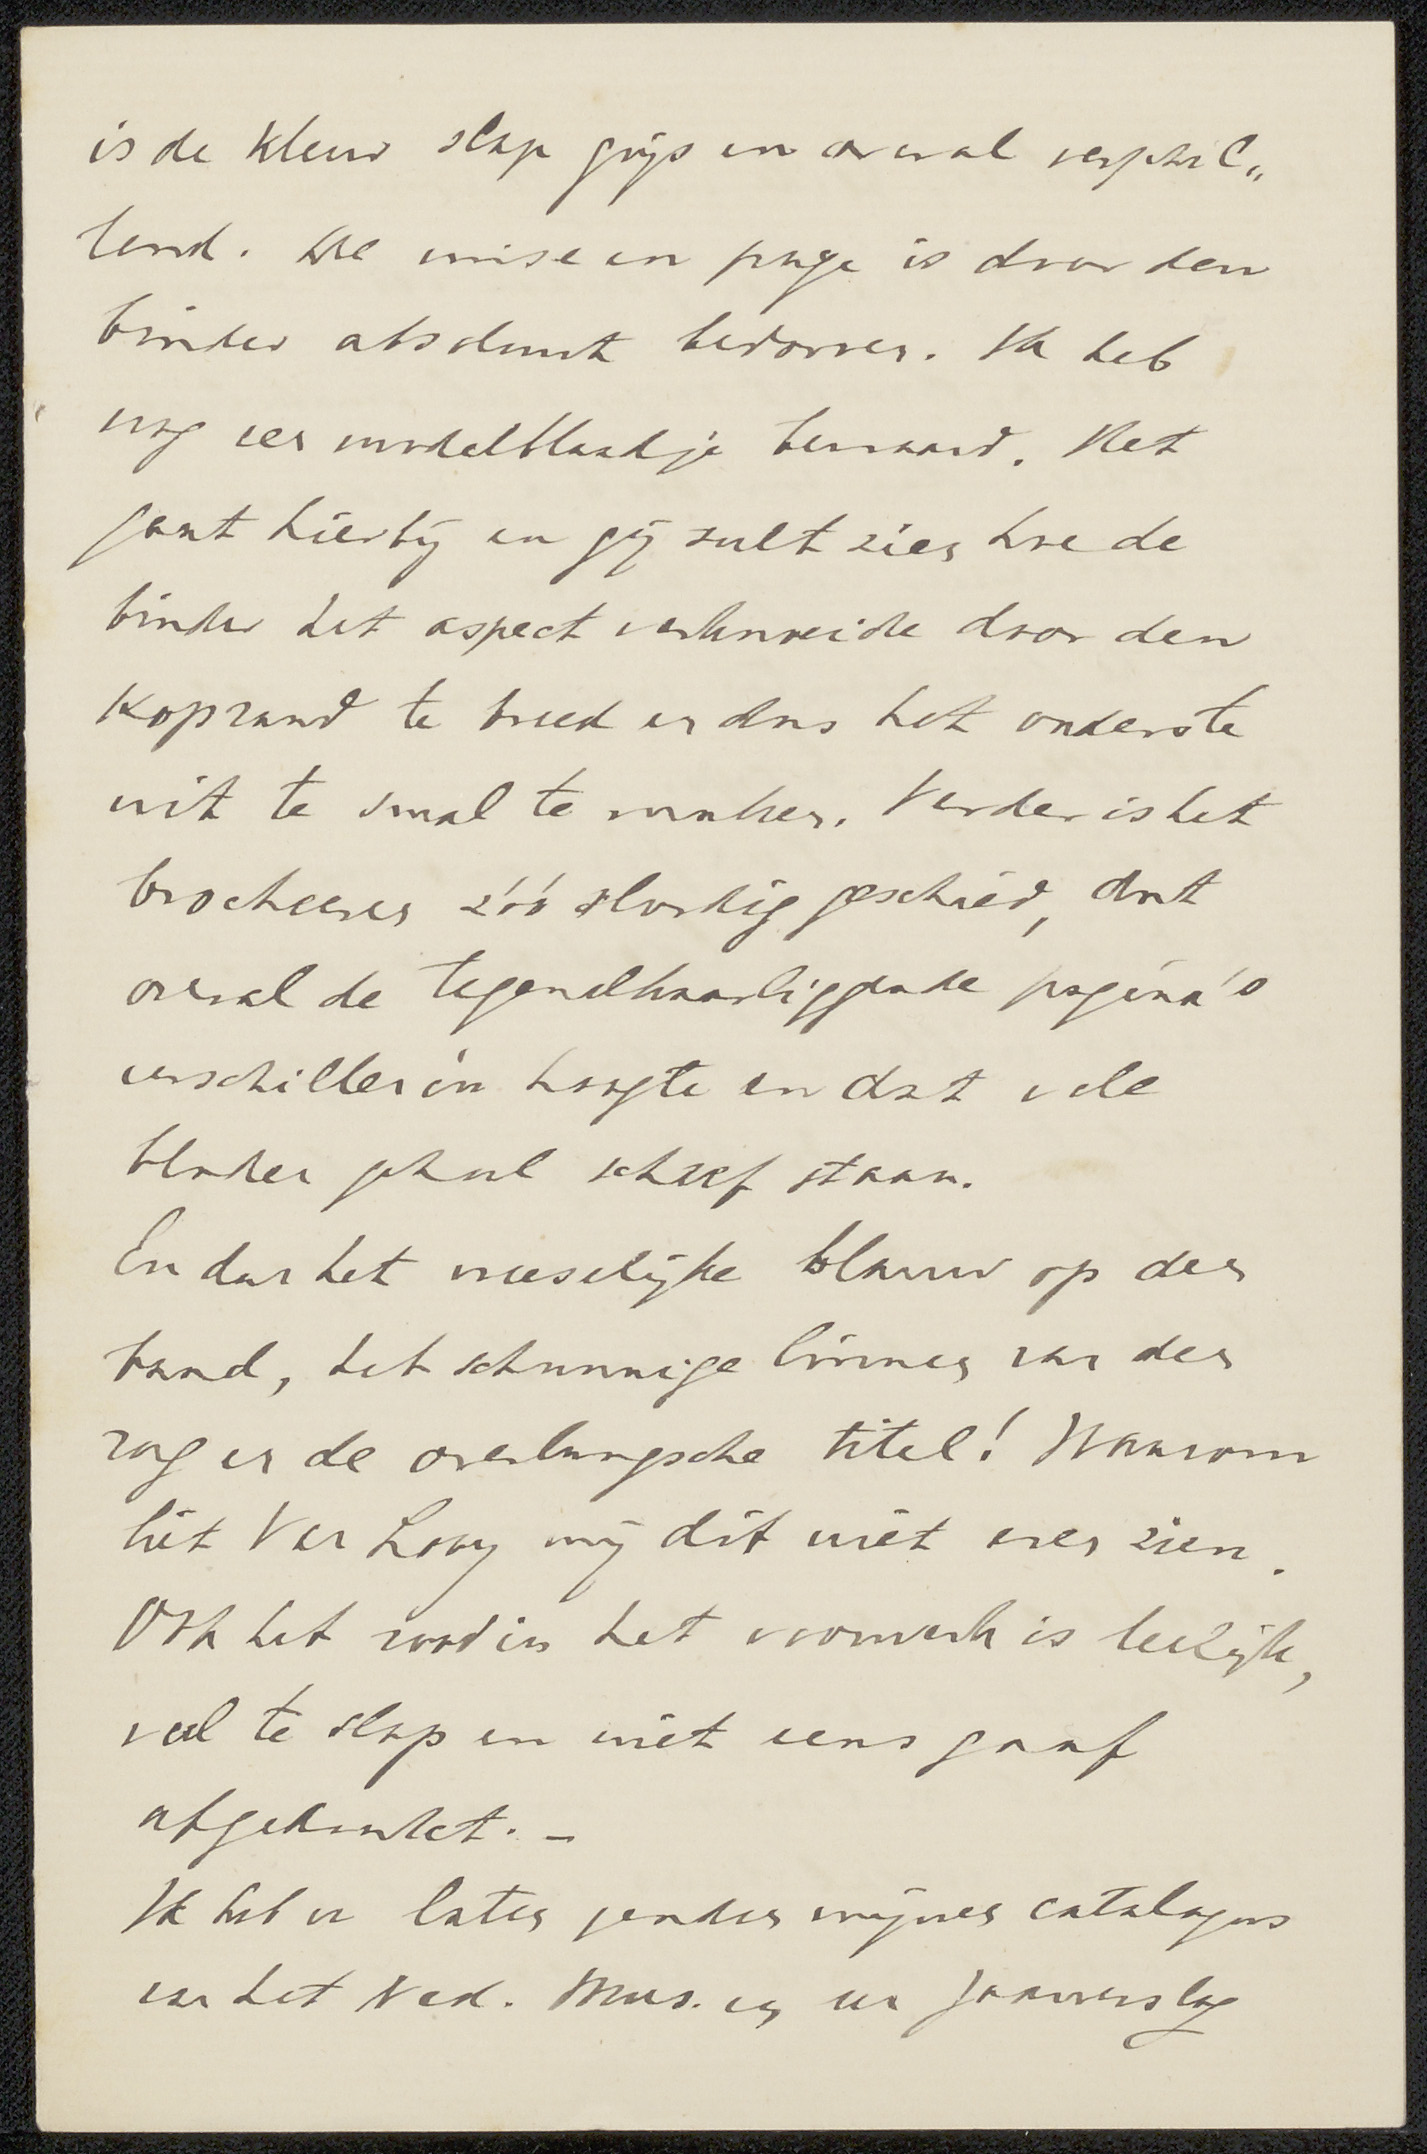 is de kleur slap grijs en overal verschil„
lend. De mise en page is door den
binder absoluut bedorven. Ik heb
nog een modelblaadje bewaard. Het
gaat hierbij en gij zult zien hoe de
binder het aspect verknoeide door den
koprand te breed en dus het onderste
wit te smal te maken. Verder is het
brocheeren zóó slordig geschied, dat
overal de tegenelkaarliggende pagina's
verschillen in hoogte en dat vele
bladen geheel scheef staan.
En dan het vreeselijke blauw op den
band, het schunnige linnen van den
rug en de overlangsche titel! Waarom
liet Van Looy mij dit niet even zien.
Ook het rood in het voorwerk is leelijk,
veel te slap en niet eens gaaf
afgedrukt. –
Ik heb u laten zenden mijnen catalogus
van het Ned. Mus. en een jaarverslag